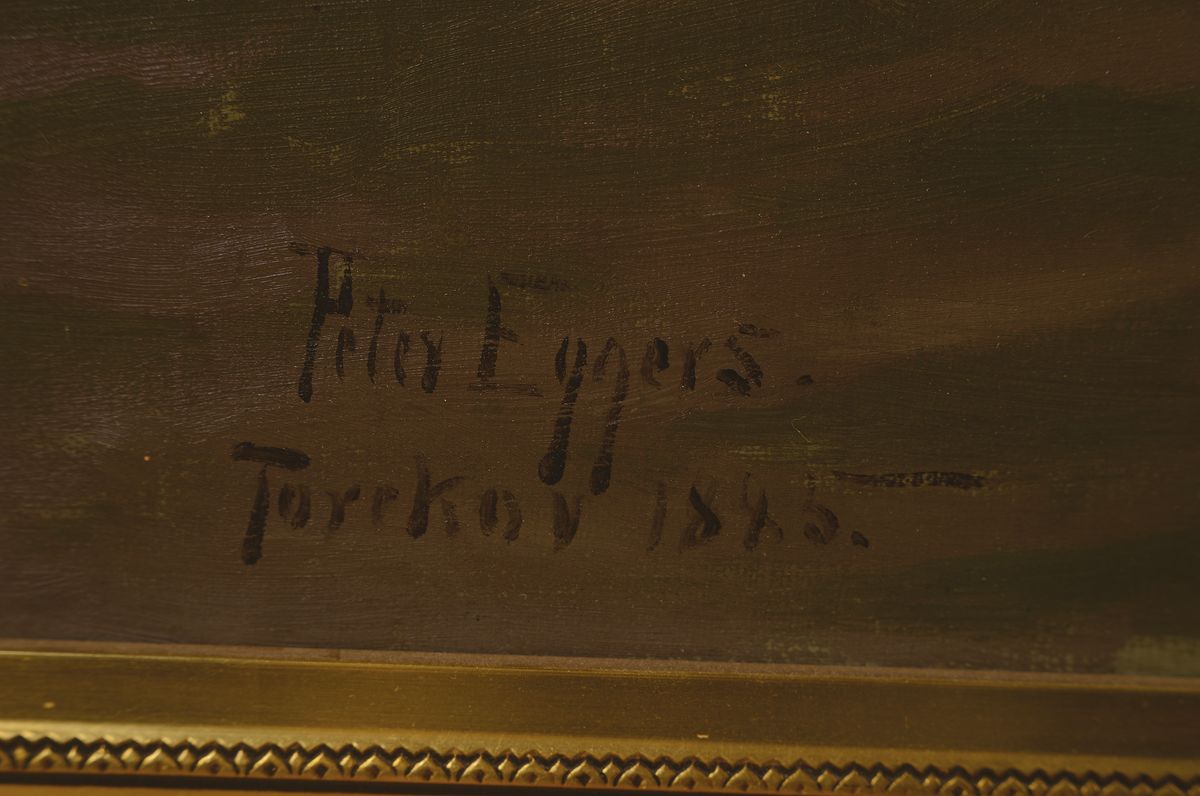 Peter Eggers.
Torekov 1885.